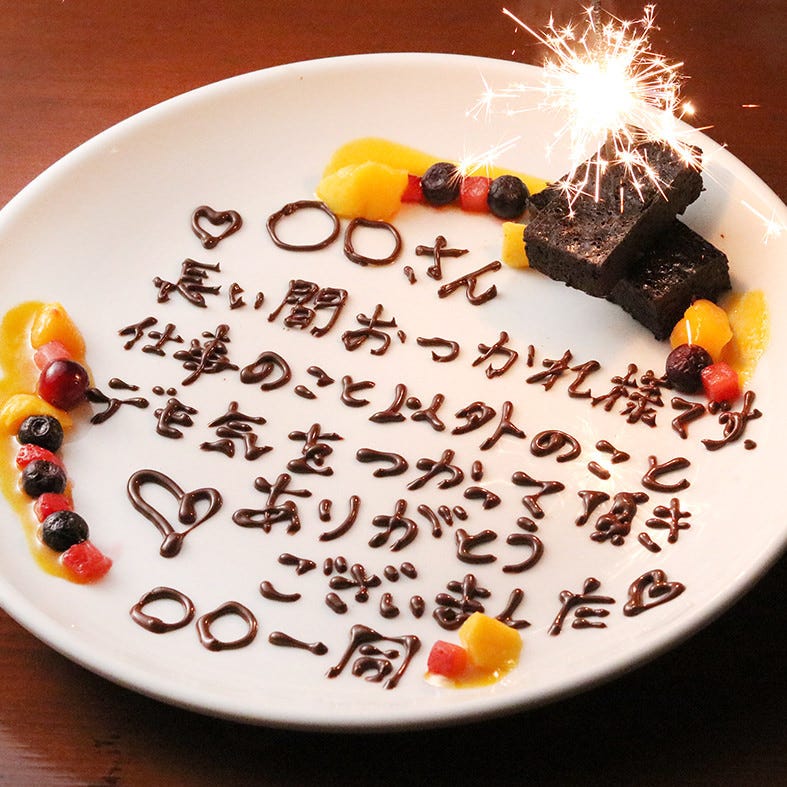 ♡〇〇さん
長い間おつかれ様です
仕事のこと以外のこと
でも気をつかって頂き
♡ありがとう
ございました♡
〇〇一同